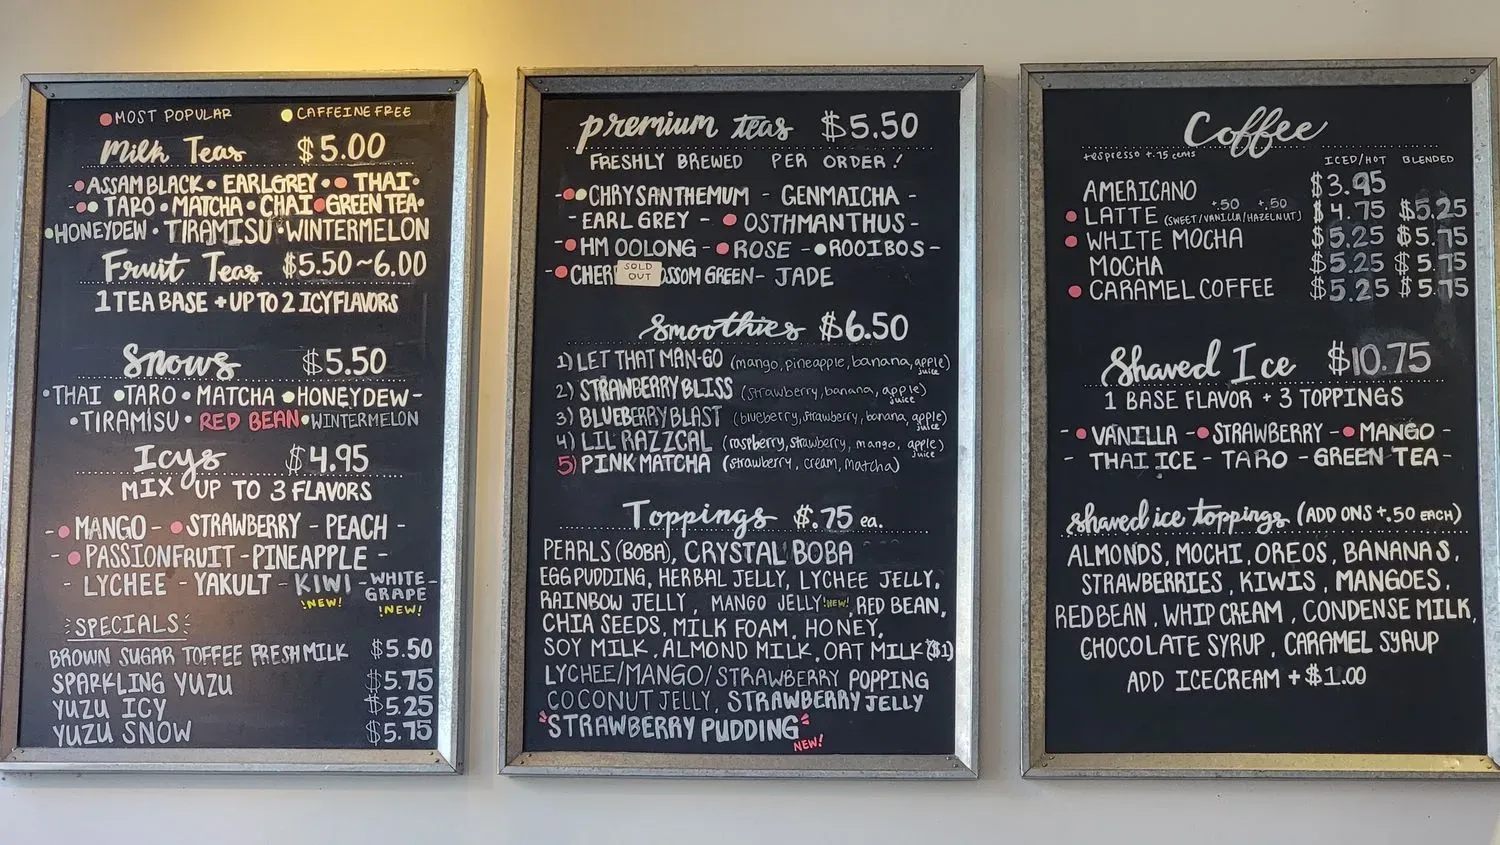 MOST POPULAR CAFFEINE FREE
Milk Teas $5.00
ASSAM BLACK • EARL GREY • THAI •
TARO • MATCHA • CHAI GREEN TEA •
HONEYDEW • TIRAMISU • WINTERMELON
Fruit Teas $5.50~6.00
1 TEA BASE + UP TO 2 ICY FLAVORS
Snows $5.50
• THAI • TARO • MATCHA • HONEYDEW -
• TIRAMISU • RED BEAN • WINTERMELON
Icys $4.95
MIX UP TO 3 FLAVORS
- MANGO - STRAWBERRY - PEACH -
- PASSIONFRUIT - PINEAPPLE -
- LYCHEE - YAKULT - KIWI - WHITE GRAPE -
!NEW! !NEW!
SPECIALS
BROWN SUGAR TOFFEE FRESH MILK $5.50
SPARKLING YUZU $5.75
YUZU ICY $5.25
YUZU SNOW $5.75
premium teas $5.50
FRESHLY BREWED PER ORDER!
- CHRYSANTHEMUM - GENMATCHA -
- EARL GREY - OSTHMANTHUS -
- HM OOLONG - ROSE - ROOIBOS -
- CHER SOLD OUT OSSOM GREEN - JADE
Smoothies $6.50
1) LET THAT MAN-GO (mango, pineapple, banana, apple juice)
2) STRAWBERRY BLISS (strawberry, banana, apple juice)
3) BLUEBERRY BLAST (blueberry, strawberry, banana, apple juice)
4) LIL' RAZZCAL (raspberry, strawberry, mango, apple juice)
5) PINK MATCHA (strawberry, cream, matcha)
Toppings $.75 ea.
PEARLS (BOBA), CRYSTAL BOBA
EGG PUDDING, HERBAL JELLY, LYCHEE JELLY,
RAINBOW JELLY, MANGO JELLY !NEW! RED BEAN,
CHIA SEEDS, MILK FOAM, HONEY,
SOY MILK, ALMOND MILK, OAT MILK ($1)
LYCHEE/MANGO/STRAWBERRY POPPING
COCONUT JELLY, STRAWBERRY JELLY
STRAWBERRY PUDDING
NEW!
Coffee
+espresso +.75 cents ICED/HOT BLENDED
AMERICANO $3.95
+.50 +.50
LATTE (SWEET/VANILLA/HAZELNUT) $4.75 $5.25
WHITE MOCHA $5.25 $5.75
MOCHA $5.25 $5.75
CARAMEL COFFEE $5.25 $5.75
Shaved Ice $10.75
1 BASE FLAVOR + 3 TOPPINGS
- VANILLA - STRAWBERRY - MANGO -
- THAI ICE - TARO - GREEN TEA -
shaved ice toppings (ADD ONS +.50 EACH)
ALMONDS, MOCHI, OREOS, BANANAS,
STRAWBERRIES, KIWIS, MANGOES,
RED BEAN, WHIP CREAM, CONDENSE MILK,
CHOCOLATE SYRUP, CARAMEL SYRUP
ADD ICECREAM + $1.00